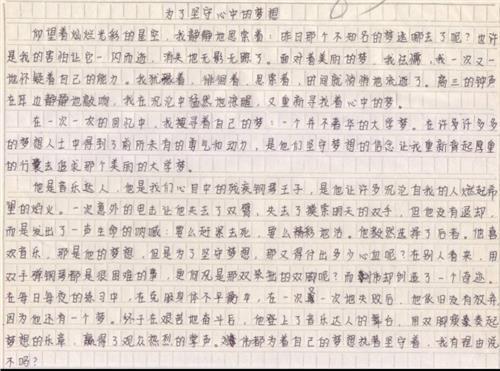 为了坚守心中的梦想
仰望着灿烂光彩的星空，我静静地思索着：昨日那个不知名的梦逃哪去了呢？也许
是我的害怕让它一闪而逝，消失地无影无踪了。面对着美丽的梦，我怯懦，我一次又一
地怀疑着自己的能力。我犹豫着，徘徊着，思索着，时间就悄悄地流逝了。高三的钟声
在耳边静静地敲响，我在沉沦中猛然地惊醒，又重新寻找着心中的梦。
在一次一次的回忆中，我搜寻着自己的梦：一个并不奢华的大学梦。在许多许多多
的梦想人士中得到了前所未有的勇气和动力，是他们坚守梦想的信念让我重新背起厚重
的行囊去追求那个美丽的大学梦。
他是音乐达人，他是我们心目中的残疾钢琴王子，是他让许多沉沦自我的人燃起希
望的焰火。一次意外的电击让他失去了双臂，失去了摸索明天的双手，但他没有退却，
而是发出了一声生命的呐喊：要么赶紧去死，要么精彩地活。他毅然选择了后者。他喜
欢音乐，那是他的梦想，但是为了坚守梦想，那又得付出多少心血呢？在别人看来，用
双手弹钢琴都是很困难的事，更何况是那双笨拙的双脚呢？而伟却创造了一个奇迹。
在每日每夜的练习中，在克服身体不平衡中，在一次又一次地失败后，他依旧没有放弃，
因为他还有一个梦。终于在艰苦地奋斗后，他登上了音乐达人的舞台，用双脚奏起
梦想的乐章，赢得了观众热烈的掌声。伟都为着自己的梦想执着坚守着，我有理由说
不吗？